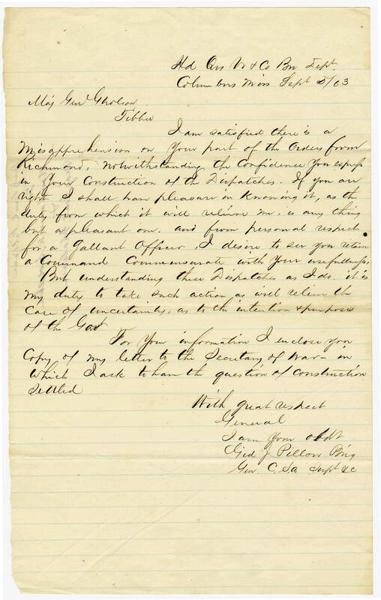 Hd Qrs V & Co Bu Dept.
Columbus Miss Sept 3/63
Maj Genl Gholson
Tibbee
I am satisfied there is a
Misapprehension on Your part of the Orders from
Richmond, Notwithstanding the Confidence You express
in Your Construction of the Dispatches. If you are
right I shall have pleasure in Knowing it, as the
duty from which it will relieve me, is any thing
but a pleasant one. and from personal respect
for a Gallant Officer I desire to see you retain
a Command Commensurate with Your usefullness.
But understanding these Dispatches as I do. it is
my duty to take such action as will relieve the
case of uncertainty, as to the intention & purpose
of the Govt
For Your information I enclose you
Copy of my letter to the Secretary of War in
which I ask to have the question of Construction
settled
With great respect
General
I am Your obdt
Gid J Pillow Brig
Gen C.S.A Supt &c